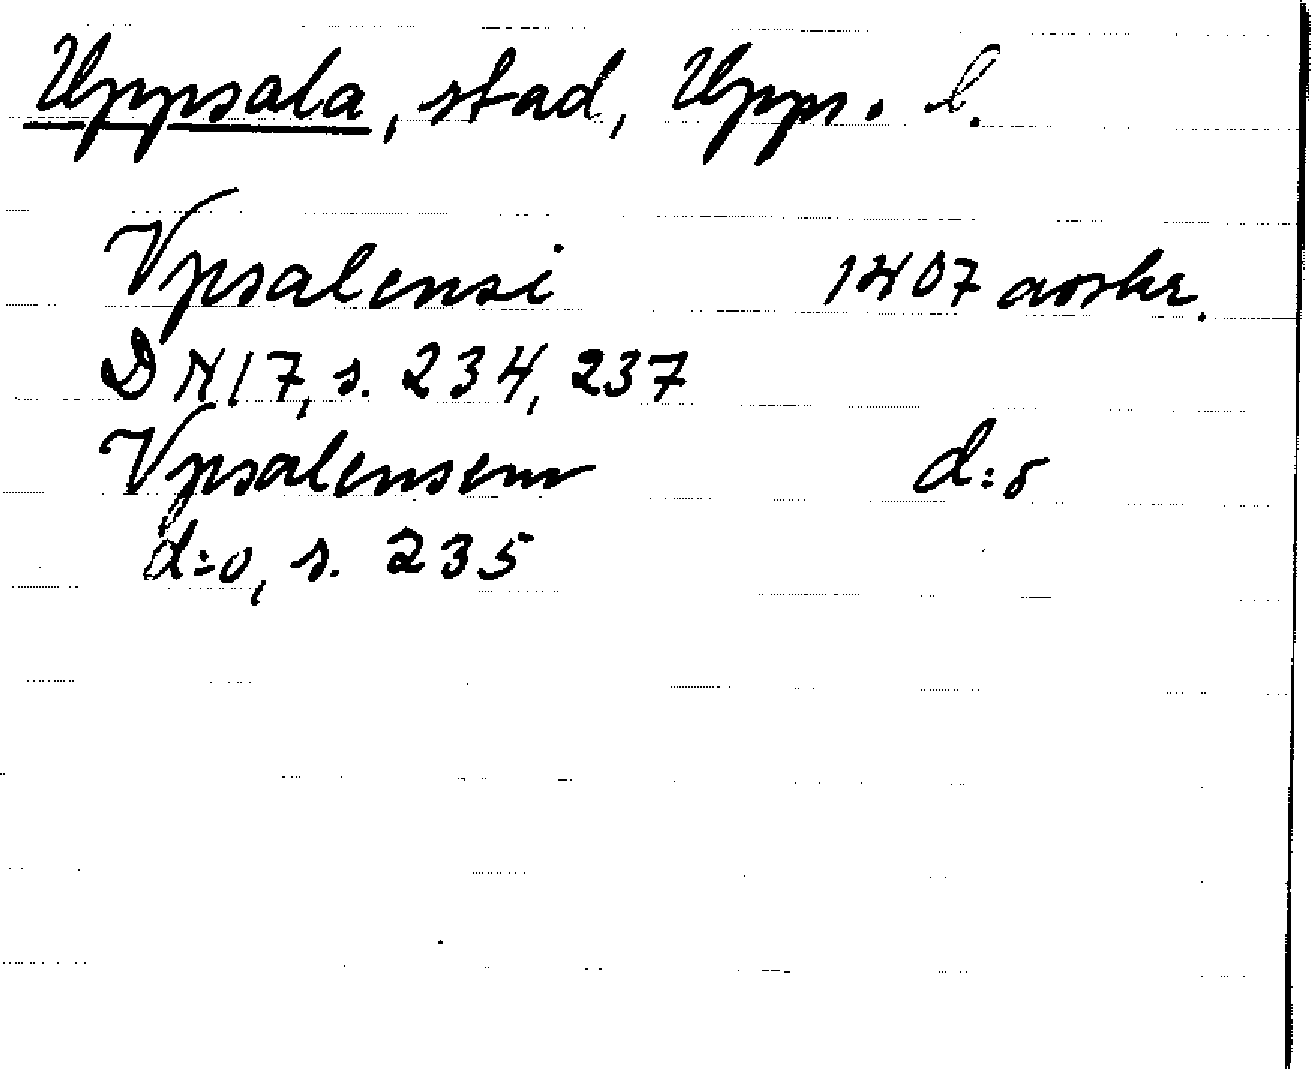 Uppsala, stad, Upps. l.
Vpsalensi 1407 avskr.
DN 17, s. 234, 237
Vpsalensem d:o
d:o, s. 235